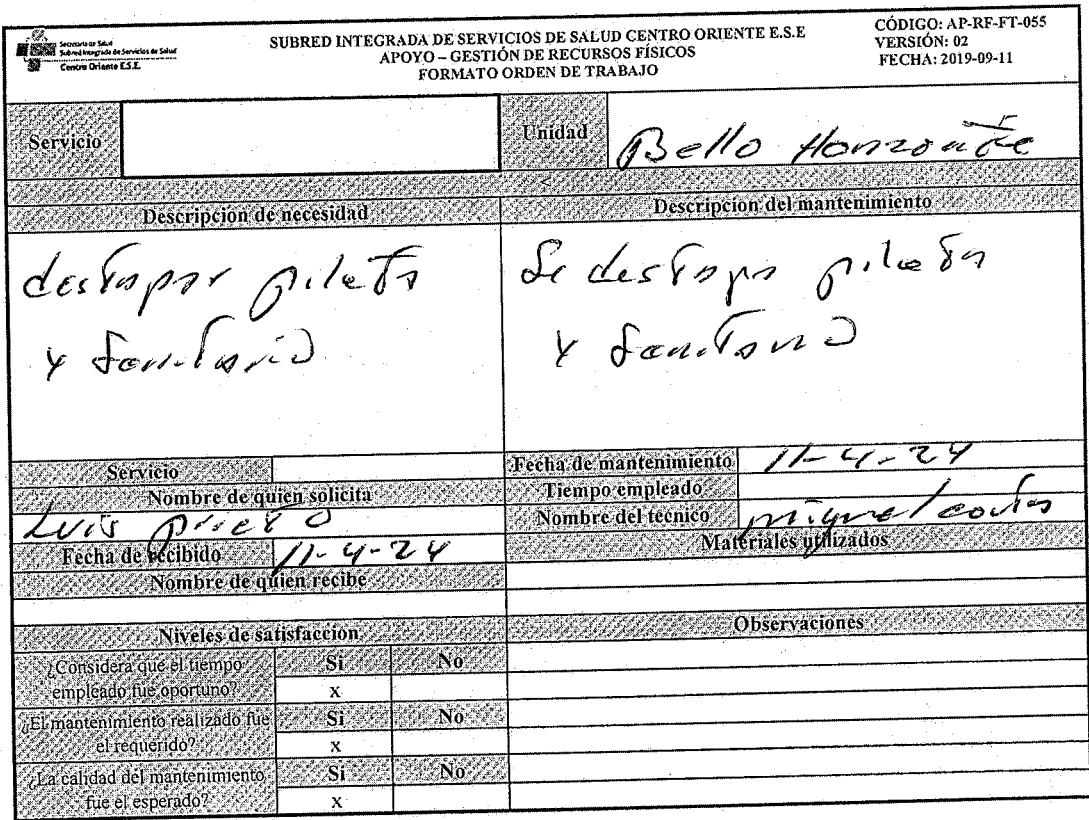 Secretaría de Salud
Subred Integrada de Servicios de Salud
Centro Oriente E.S.E.
SUBRED INTEGRADA DE SERVICIOS DE SALUD CENTRO ORIENTE E.S.E
APOYO – GESTIÓN DE RECURSOS FÍSICOS
FORMATO ORDEN DE TRABAJO
CÓDIGO: AP-RF-FT-055
VERSIÓN: 02
FECHA: 2019-09-11
Servicio
Unidad Bello Horizonte
Descripcion de necesidad
destapar pileta
y Sanitario
Descripcion del mantenimiento
Se destapa pileta
y Sanitario
Servicio
Nombre de quien solicita
Luis prieto
Fecha de recibido 11-4-24
Nombre de quien recibe
Fecha de mantenimiento 11-4-24
Tiempo empleado
Nombre del tecnico miguel
Materiales utilizados
Niveles de satisfaccion
¿Considera que el tiempo
empleado fue oportuno?
Si No
x
¿El mantenimiento realizado fue
el requerido?
Si No
x
¿La calidad del mantenimiento
fue el esperado?
Si No
x
Observaciones